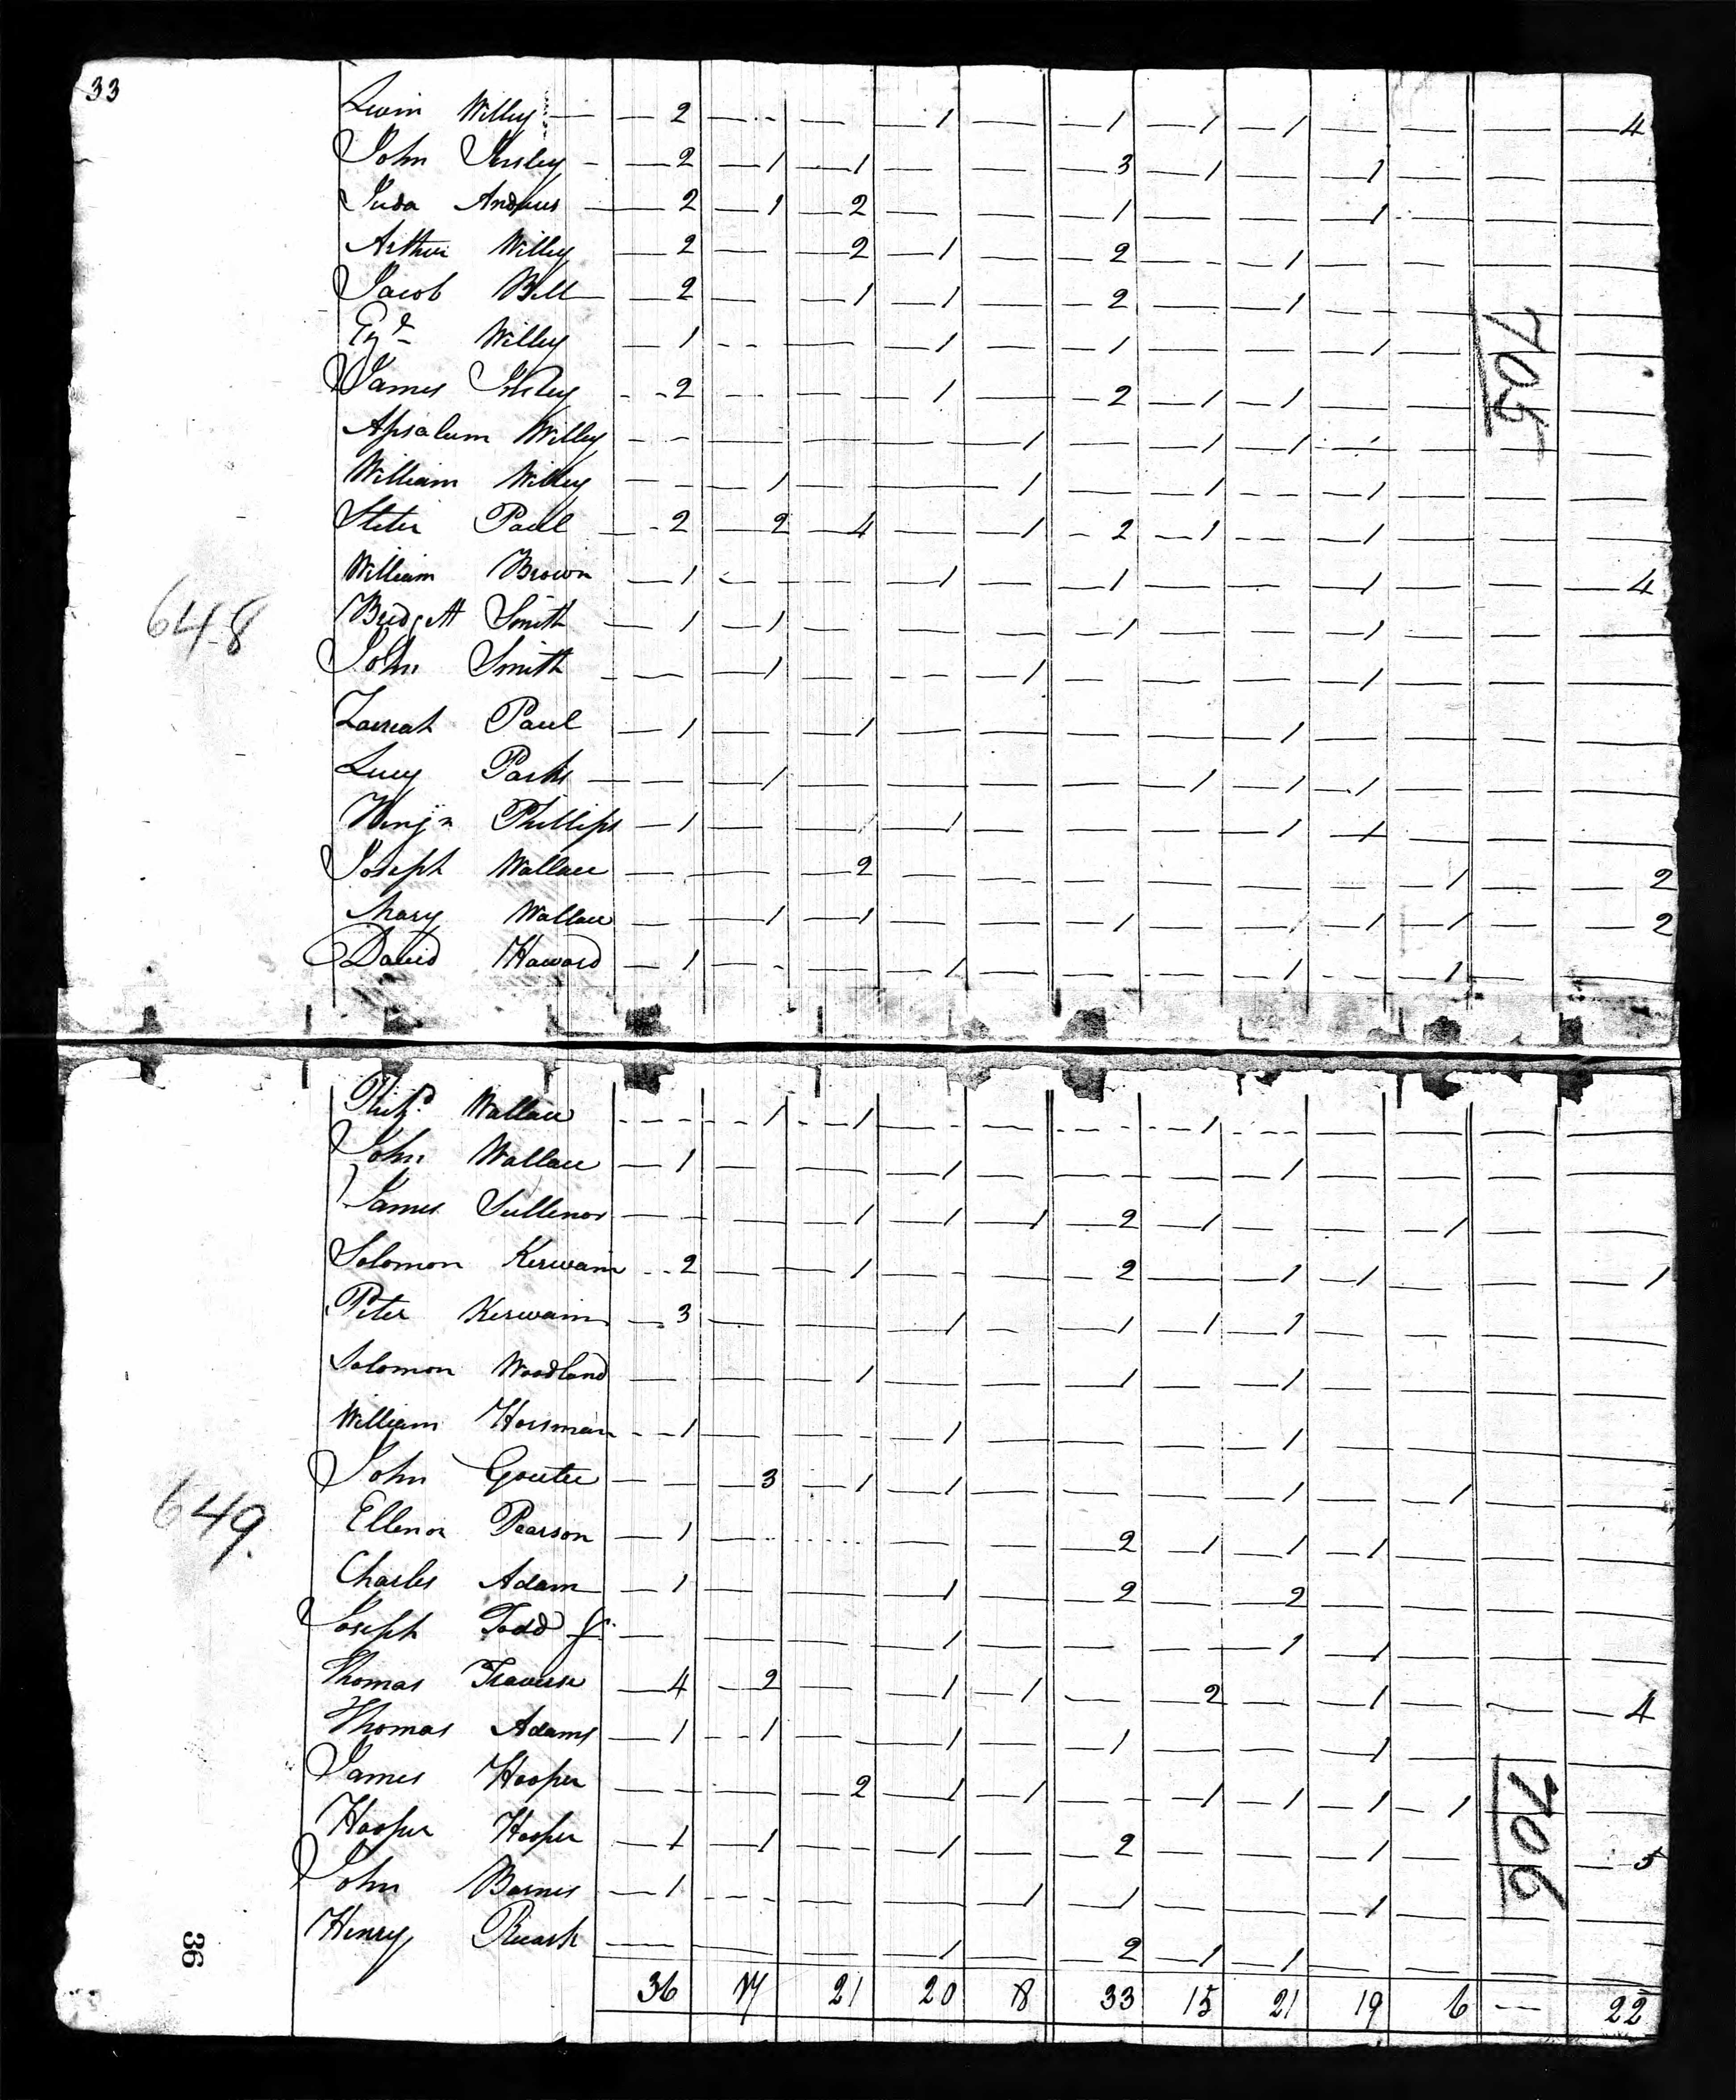 33
Levin Willey — 2 — — 1 — 1 1 1 — — — 4
John Insley — 2 1 1 — — 3 1 — 1 — — —
Juda Andrews — 2 1 2 — — 1 — — 1 — — —
Arthur Willey — 2 — 2 1 — 2 — 1 — — — —
Jacob Bell — 2 — 1 1 — 2 — 1 — — — —
Willey — 1 — — 1 — 1 — — 1 — — —
James Insley — 2 — — 1 — 2 1 1 — — — —
Apsalum Willey — — — — 1 — 1 1 1 — — —
William Willey — 1 — — 1 — 1 — 1 — — —
Peter Paul — 2 2 4 — 1 2 1 — 1 — — —
William Brown — 1 — — 1 — 1 — — 1 — — 4
Bridgett Smith — 1 1 — — — 1 — — 1 — — —
John Smith — — 1 — — 1 — — — 1 — — —
Zacreah Paul — 1 — 1 — — — — 1 — — — —
Lucy Parks — — 1 — — — — 1 1 1 — — —
Phillips — 1 — 1 1 — — — 1 1 — — —
Joseph Wallace — — — 2 — — — — — — 1 — 2
Mary Wallace — — 1 1 — — 1 — 1 1 1 — 2
David Haward — 1 — — 1 — — — 1 — 1 — —
648
705
Wallace — — 1 1 — — — 1 — — — — —
John Wallace — 1 — — 1 — — — 1 — — — —
James Sullenor — — — 1 1 1 2 1 — — 1 — —
Solomon Kerwain — 2 — 1 — — 2 — 1 1 — — 1
Peter Kerwain — 3 — — 1 — 1 1 1 — — — —
Solomon Woodland — — — 1 — — 1 — 1 — — — —
William Horsman — 1 — — 1 — — — 1 — — — —
John Gootee — — 3 1 1 — — — 1 — 1 — —
Ellenor Pearson — 1 — — — — 2 1 1 1 — — —
Charles Adam — 1 — — 1 — 2 — 2 — — — —
Joseph Todd Jr. — — — — 1 — — — 1 1 — — —
Thomas Traverse — 4 2 — 1 1 — 2 — 1 — — 4
Thomas Adams — 1 1 — 1 — 1 — — 1 — — —
James Hooper — — — 2 1 1 — 1 1 1 1 — —
Hooper Hooper — 1 1 — 1 — 2 — — 1 — — 5
John Barnes — 1 — — — 1 1 — — 1 — — —
Henry Ruark — — — — 1 — 2 1 1 — — — —
36 17 21 20 8 33 15 21 19 6 — 22
649.
706
36